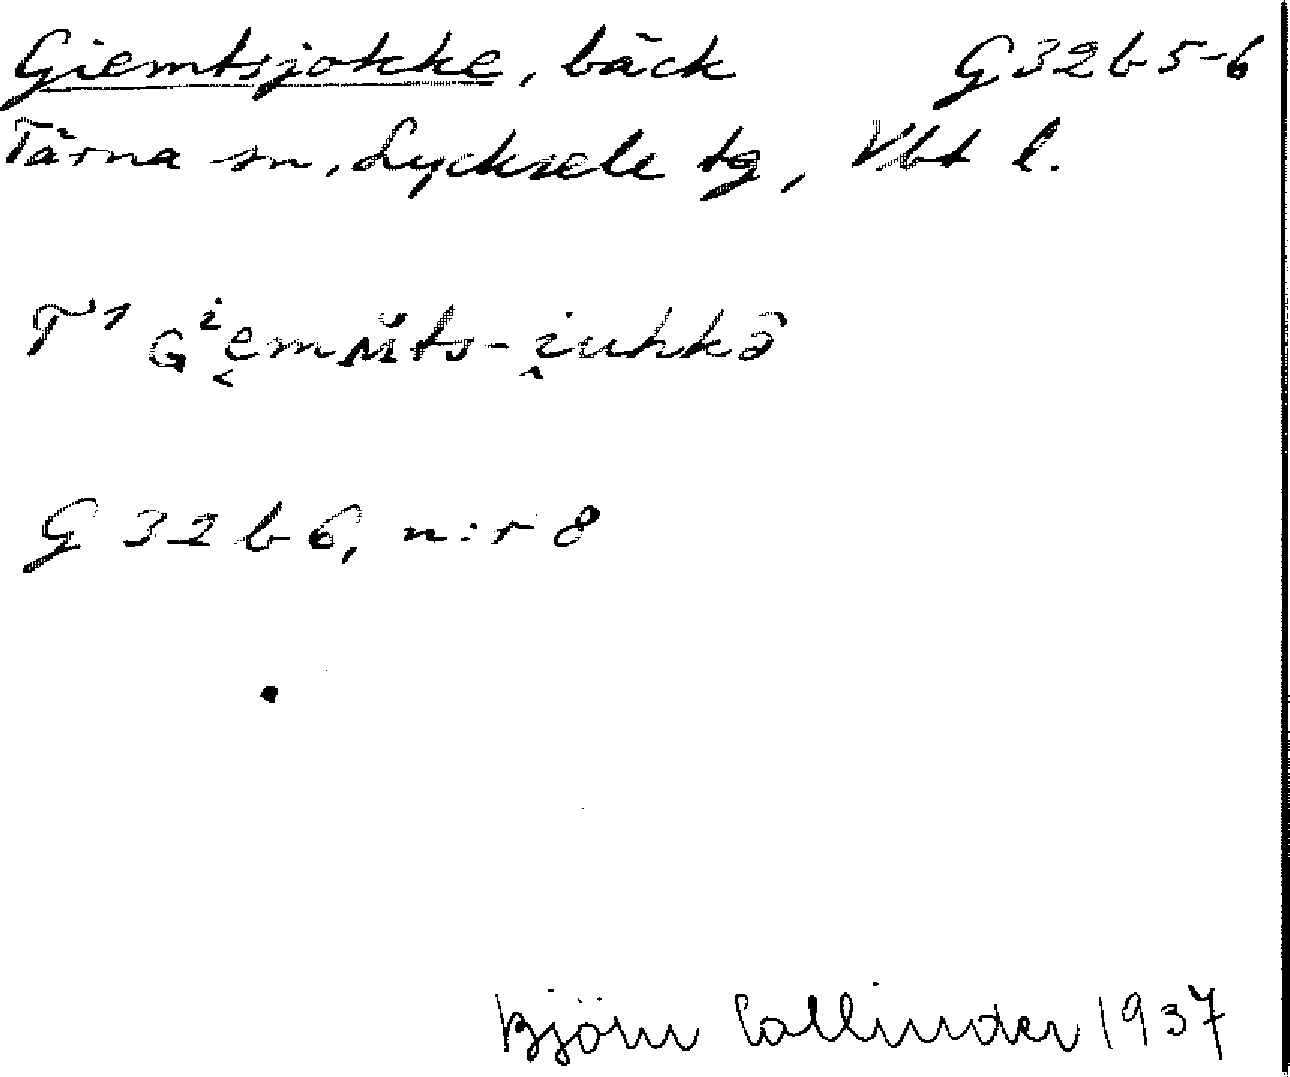 Giemtsjokke, bäck G32b5-6
Tärna sn, Lycksele tg, Vbt l.
T¹
G 32 b 6, n:r 8
Björn Collinder 1937